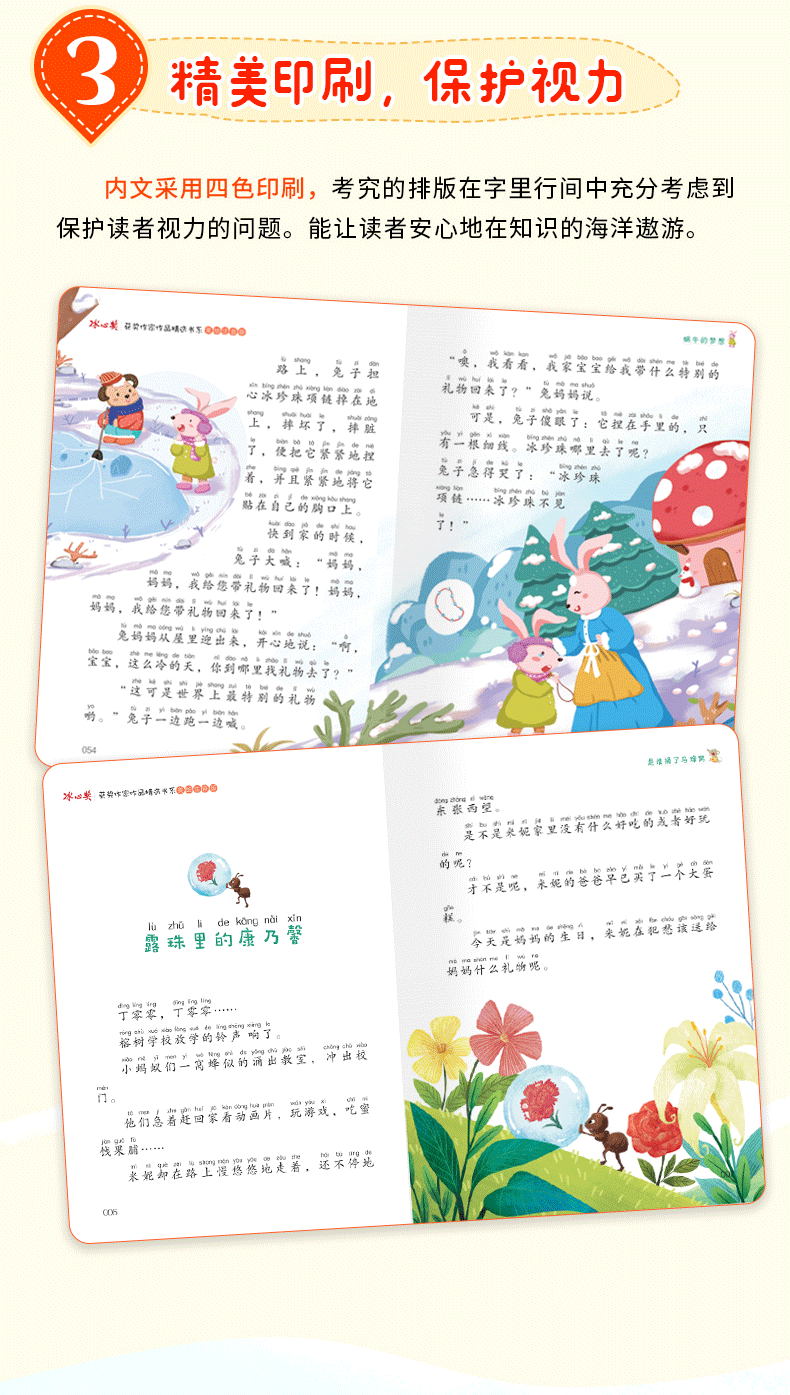 3
精美印刷，保护视力
内文采用四色印刷，考究的排版在字里行间中充分考虑到
保护读者视力的问题。能让读者安心地在知识的海洋遨游。
冰心奖 获奖作家作品精选书系
路上，兔子担
心冰珍珠项链掉在地
上，摔坏了，摔脏
了，便把它紧紧地捏
着，并且紧紧地将它
贴在自己的胸口上。
快到家的时候，
兔子大喊：“妈妈，
妈妈，我给您带礼物回来了！妈妈，
妈妈，我给您带礼物回来了！”
兔妈妈从屋里迎出来，开心地说：“啊，
宝宝，这么冷的天，你到哪里找礼物去了？”
“这可是世界上最特别的礼物
哟。”兔子一边跑一边喊。
054
蜗牛的梦想
“噢，我看看，我家宝宝给我带什么特别的
礼物回来了？”兔妈妈说。
可是，兔子傻眼了：它捏在手里的，只
有一根细线。冰珍珠哪里去了呢？
兔子急得哭了：“冰珍珠
项链……冰珍珠不见
了！”
冰心奖 获奖作家作品精选书系
lù zhū li de kāng nǎi xīn
露珠里的康乃馨
dīng líng líng dīng líng líng
丁零零，丁零零……
榕树学校放学的铃声响了。
小蚂蚁们一窝蜂似的涌出教室，冲出校
门。
他们急着赶回家看动画片，玩游戏，吃蜜
饯果脯……
米妮却在路上慢悠悠地走着，还不停地
006
是谁捅了马蜂窝
东张西望。
是不是米妮家里没有什么好吃的或者好玩
的呢？
才不是呢，米妮的爸爸早已买了一个大蛋
糕。
今天是妈妈的生日，米妮在犯愁该送给
妈妈什么礼物呢。